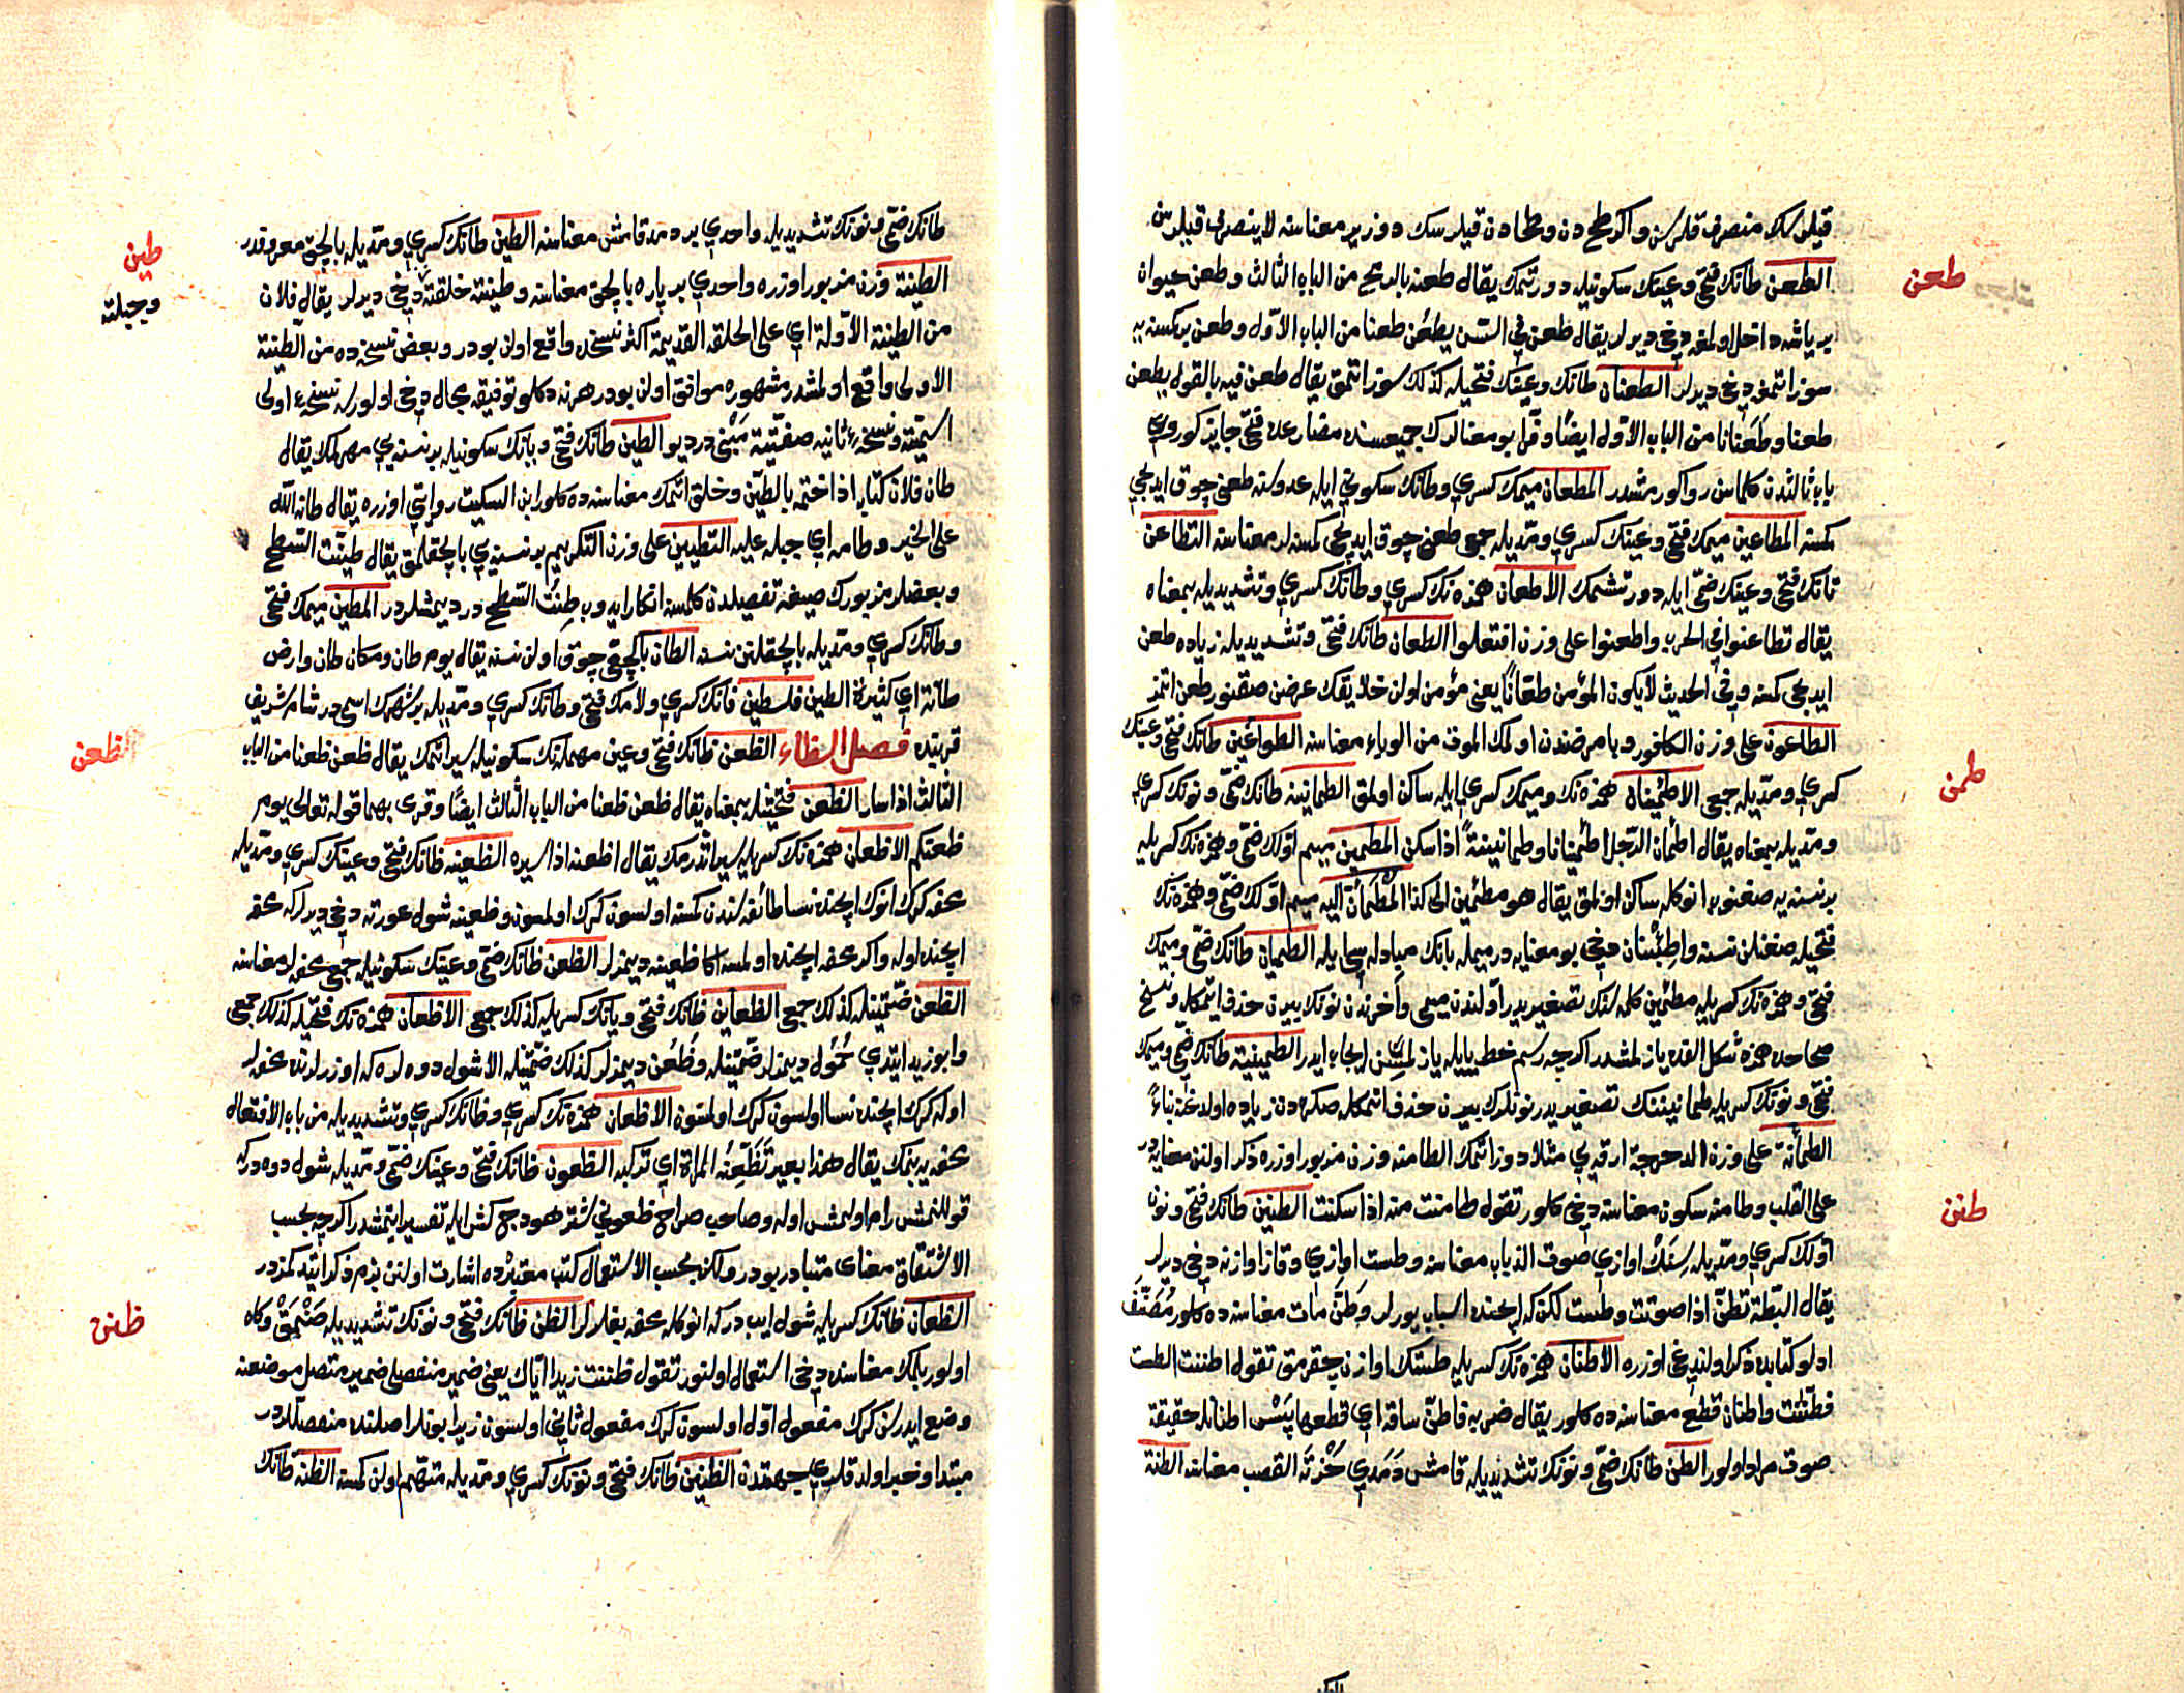 قيلرسك منصرف قلرسن واكر طح دن وطحا دن قيلرسك دوزير معناسنه لا ينصرف قيلرسن
طعن
الطعن طانك فتحى وعينك سكونيله دورتمك يقال طعنه بالرمح من الباب الثالث وطعن حيوان
بر ياشه داخل اولمغه دخى ديرلر يقال طعن في السن يطعن طعنا من الباب الاول وطعن بر كمسنه يه
سوز اتمغه دخى ديرلر الطعنان طانك وعينك فتحيله كذلك سوز اتمق يقال طعن فيه بالقول يطعن
طعنا وطعنانا من الباب الاول ايضا وفرا بو معنالرك جميعسنده مضارعده فتحى جايز كوروب
باب ثالثدن كلماسن روا كورمشدر المطعان ميمك كسرى وطانك سكونى ايله عدوسنه طعنى چوق ايديجى
كمسنه المطاعين ميمك فتحى وعينك كسرى ومديله جمعى طعنى چوق ايديجى كمسنه لر معناسنه التطاعن
تانك فتحى وعينك ضمى ايله دورتشمك الاطعان همزه نك كسرى وطانك كسرى وتشديديله بمعناه
يقال تطاعنوا في الحرب واطعنوا على وزن افتعلوا الطعان طانك فتحى وتشديديله زياده طعن
ايديجى كمسنه وفي الحديث لا يكون المؤمن طعانا يعنى مؤمن اولن خلايقك عرضن صقنور طعن اتمز
الطاعون على وزن الكافور وبا مرضندن اولمك الموت من الوباء معناسنه الطواعين طانك فتحى وعينك
طمن
كسرى ومديله جمعى الاطمئنان همزه نك وميمك كسرى ايله ساكن اولمق الطمانينه طانك ضمى ونونك كسرى
ومديله بمعناه يقال اطمأن الرجل اطمئنانا وطمانينة اذا سكن المطمئن ميم اولك ضمى وهمزه نك كسريله
بر نسنه يه صغنوب انوكله ساكن اولمق يقال هو مطمئن الى كذا المطمأن اليه ميم اولك ضمى وهمزه نك
فتحيله صغنلن نسنه واطبئنان دخى بو معنايه در ميمله بانك مبادله سى ايله الطميان طانك ضمى وميمك
فتحى وهمزه نك كسريله مطمئن كلمه سنك تصغيريدر اولندن ميمى وآخرندن نونك بيرن حذف ايتمكله ونسخ
صحاحده همزه شكل القده يازلمشدر اكرچه رسم خط يايله يازلمسن ايجاب ايدر الطمينينة طانك ضمى وميمك
فتحى ونونك كسريله طمانينتك تصغيريدر نونلرك بيرن حذف اتمكله صكره دن زياده اولدغنه بناءً
الطمأنة على وزن الدحرجة ارقه يى مثلا دوز اتمك الطامنه وزن مزبور اوزره ذكر اولنن معنايه در
على القلب وطامنه سكون معناسنه دخى كلور تقول طامنت منه اذا سكنت الطنين طانك فتحى ونون
طنن
اولك كسرى ومديله سنك اوازى صوت الذباب معناسنه وطست اوازى وقاز اوازنه دخى ديرلر
يقال البطة تطن اذا صوتت وطست لكن كه ايچنده اسباب يورلر وطن مات معناسنده كلور مصنف
ادلو كتابده ذكر اولندغى اوزره الاطنان همزه نك كسريله طستك اوازن چقرمق تقول اطننت الطست
فطنت واطنان قطع معناسنده كلور يقال ضربه فاطن ساقه اى قطعها پس اطناندن حقيقة
صوت مراد اولور الطن طانك ضمى ونونك تشديديله قامش دمدى حزمة القصب معناسنه الطنة
طانك ضمى ونونك تشديديله واحدى بر دمد قامش معناسنه الطين طانك كسرى ومديله بالچق معروفدر
طين
وجبلته
الطينة وزن مزبور اوزره واحدى بر پاره بالچق معناسنه وطينت خلقته دخى ديرلر يقال فلان
من الطينة الاولة اى على الخلقة القديمة اكثر نسخده واقع اولن بودر وبعض نسخه ده من الطينة
الاولى واقع اولمشدر مشهوره موافق اولن بودر هر نه دكلو توفيقه مجال دخى اولورسه نسخهء اولى
اسميته ونسخهء ثانيه صفتيته مبنى در ديو الطين طانك فتحى ويانك سكونيله بر نسنه يى مهرلمك يقال
طان فلان كتابه اذا ختمه بالطين وخلق اتمك معناسنده كلور ابن السكيت روايتى اوزره يقال طانه الله
على الخير وطامه اى جبله عليه التطيين على وزن التكريم بر نسنه يى بالچقلمق يقال طينت السطح
وبعضلر مزبورك صيغهء تفعيلدن كلمسنه انكار ايدوب طِنْتُ السطح در ديمشلردر المطين ميمك فتحى
وطانك كسرى ومديله بالچقلنن نسنه الطان بالچغى چوق اولن نسنه يقال يوم طان ومكان طان وارض
طانة اى كثيرة الطين فلسطين فانك كسرى ولامك فتحى وطانك كسرى ومديله بر شهرك اسمى در شام شريف
قربنده فصل الظاء الظعن ظانك فتحى وعين مهمله نك سكونيله سير اتمك يقال ظعن ظعنا من الباب
الظعن
الثالث اذا سار الظعن فتحتينله بمعناه يقال ظعن ظعنا من الباب الثالث ايضا وقرئ بهما قوله تعالى يوم
ظعنكم الاظعان همزه نك كسريله سير اتدرمك يقال اظعنه اذا سيره الظعينه ظانك فتحى وعينك كسرى ومديله
محفه كرك انوك ايچنده نسا طائفه سندن كمسنه اولسون كرك اولمسون وظعينه شول عورته دخى ديرلر كه محفه
ايچنده اوله واكر محفه ايچنده اولمسه اكا ظعينه ديمزلر الظعن ظانك ضمى وعينك سكونيله جمعى محفه لر معناسنه
الظعن ضمتينله كذلك جمعى الظعاين ظانك فتحى ويانك كسريله كذلك جمعى الاظعان همزه نك فتحيله كذلك جمعى
وابو زيد ايتدى حُمُول ديمزلر ضمتينله وظُعُن ديمزلر كذلك ضمتينله الا شول دوه لره كه اوزرلرنده محفه لر
اوله كرك ايچنده نسا اولسون كرك اولمسون الاظعان همزه نك كسرى وظانك كسرى وتشديديله من باب الافتعال
محفه يه بنمك يقال هذا بعير تظعنه المراة اى تركبه الظعون ظانك فتحى وعينك ضمى ومديله شول دوه در كه
قوللنمش رام اولمش اوله وصاحب صراح ظعونى شتر هودج كش ايله تفسير ايتمشدر اكرچه بحسب
الاشتقاق معناى متبادر بودر ولكن بحسب الاستعمال كتب معتبرده اشارت اولنن بزم ذكر ايتدكمزدر
الظعان ظانك كسريله شول ايپدر كه انوكله محفه بغلرلر الظن ظانك فتحى ونونك تشديديله صنمق وكاه
ظنن
اولور بلمك معناسنده دخى استعمال اولنور تقول ظننت زيدا اياك يعنى ضمير منفصلى ضمير متصل موضعنه
وضع ايدرسن كرك مفعول اول اولسون كرك مفعول ثانى اولسون زيرا بونلر اصلنده منفصللردر
مبتدا وخبر اولدقلرى جهتدن الظنين ظانك فتحى ونونك كسرى ومديله متهم اولن كمسنه الظنه ظانك